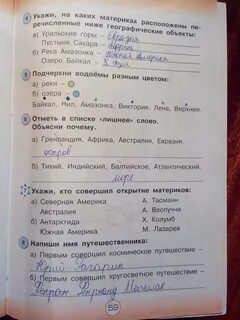 Укажи, на каких материках расположены пе-
речисленные ниже географические объекты:
а) Уральские горы - Евразия
Пустыня Сахара - Африка
б) Река Амазонка - Южная Америка
Озеро Байкал -
Подчеркни водоёмы разным цветом:
а) реки -
б) озёра -
Байкал, Нил, Амазонка, Виктория, Лена, Верхнее.
Отметь в списке «лишнее» слово.
Объясни почему.
а) Гренландия, Африка, Австралия, Евразия.
остров
б) Тихий, Индийский, Балтийское, Атлантический.
море
Укажи, кто совершил открытие материков:
а) Северная Америка А. Тасманн
Австралия А. Веспуччи
б) Антарктида Х. Колумб
Южная Америка М. Лазарев
Напиши имя путешественника:
а) Первым совершил космическое путешествие -
Юрий Гагарин
б) Первым совершил кругосветное путешествие -
Фернанд Магеллан.
59